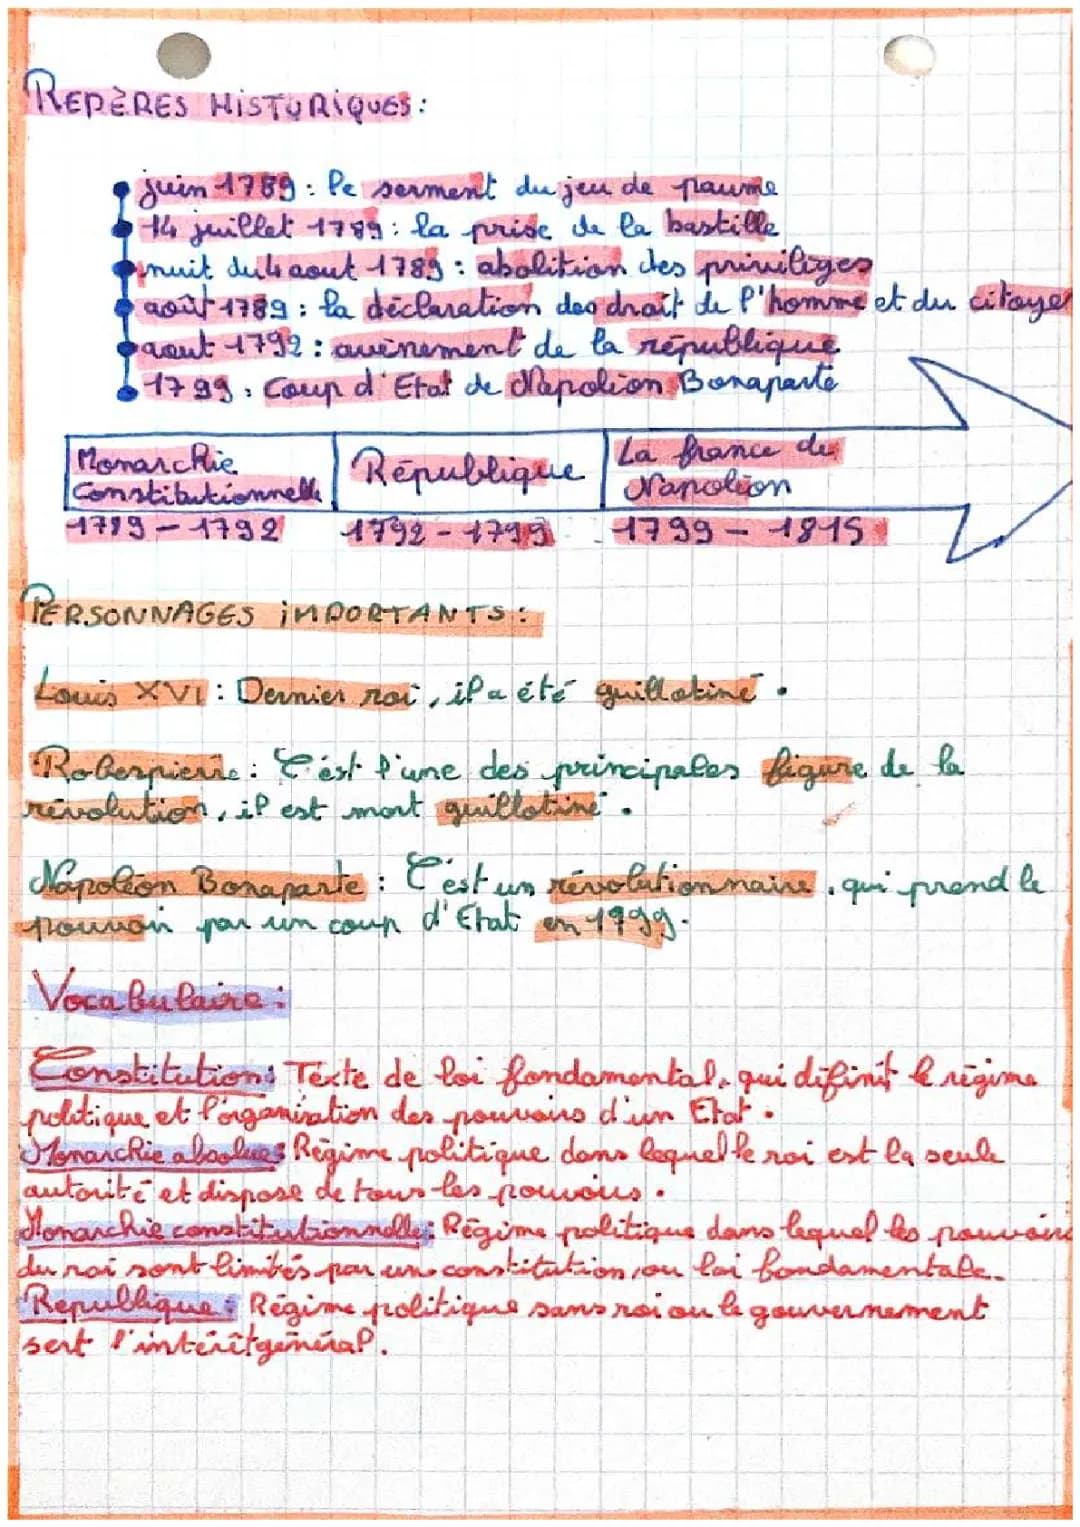 REPÈRES HISTORIQUES:
juin 1789 : le serment du jeu de paume
14 juillet 1789 : la prise de la bastille
nuit du 4 aout 1789 : abolition des privilèges
août 1789 : la déclaration des droit de l'homme et du citoyen
aout 1792 : avènement de la république
1799 : Coup d'Etat de Napoléon Bonaparte
Monarchie
Constitutionnelle
République
La france de
Napoléon
1789 - 1792
1792 - 1799
1799 - 1815
PERSONNAGES IMPORTANTS :
Louis XVI : Dernier roi, il a été guillotiné.
Roberpierre : C'est l'une des principales figure de la
révolution, il est mort guillotiné.
Napoléon Bonaparte : C'est un révolutionnaire, qui prend le
pouvoir par un coup d'Etat en 1999.
Vocabulaire :
Constitution : Texte de loi fondamental, qui définit le régime
politique et l'organisation des pouvoirs d'un Etat.
Monarchie absolue : Régime politique dans lequel le roi est la seule
autorité et dispose de tous les pouvoirs.
Monarchie constitutionnelle : Régime politique dans lequel les pouvoirs
du roi sont limités par une constitution, ou loi fondamentale.
Republique : Régime politique sans roi ou le gouvernement
sert l'intérêt général.